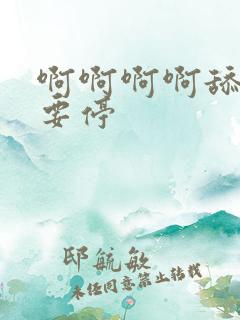 啊啊啊啊舔
要停
邸毓敏
未经同意禁止转载